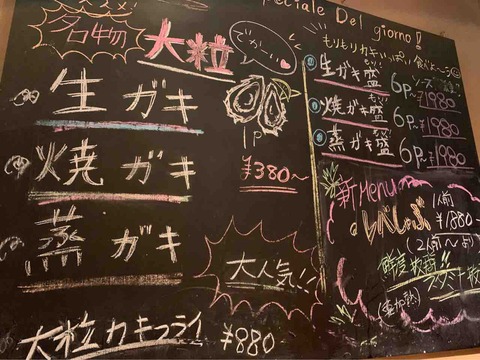 名物
大粒
生ガキ
焼ガキ
蒸ガキ
1P
¥380~
大人気!!
大粒カキフライ ¥880-
peciale Del giorno!
もりもりカキいっぱい食べよ〜う
①生ガキ盛 6P~¥1980
②焼ガキ盛 6P~¥1980
③蒸ガキ盛 6P~¥1980
新Menu
レバしゃぶ 1人前
¥1880-
(2人前〜より)
鮮度抜群!!